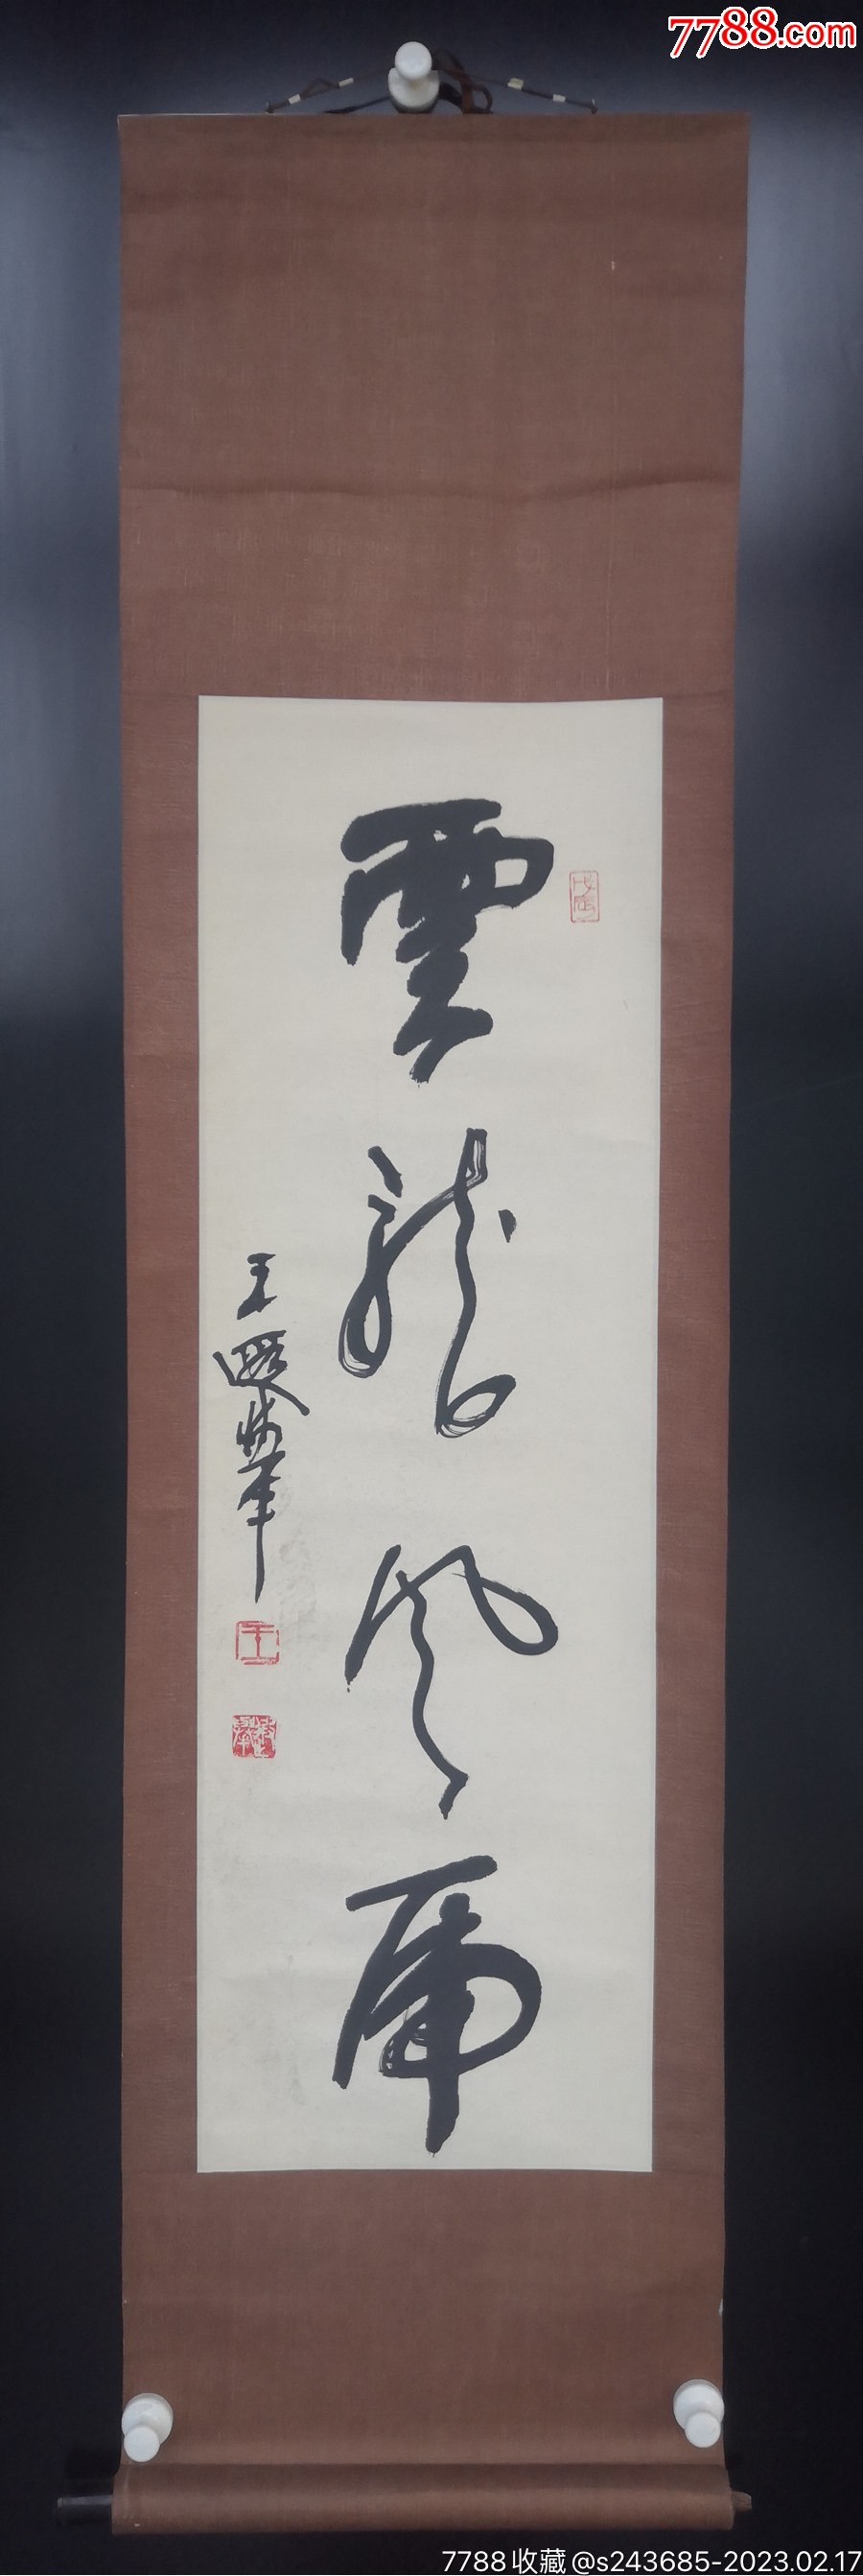 7788.com
雲龍風虎
王遐举
王
7788收藏@s243685-2023.02.17